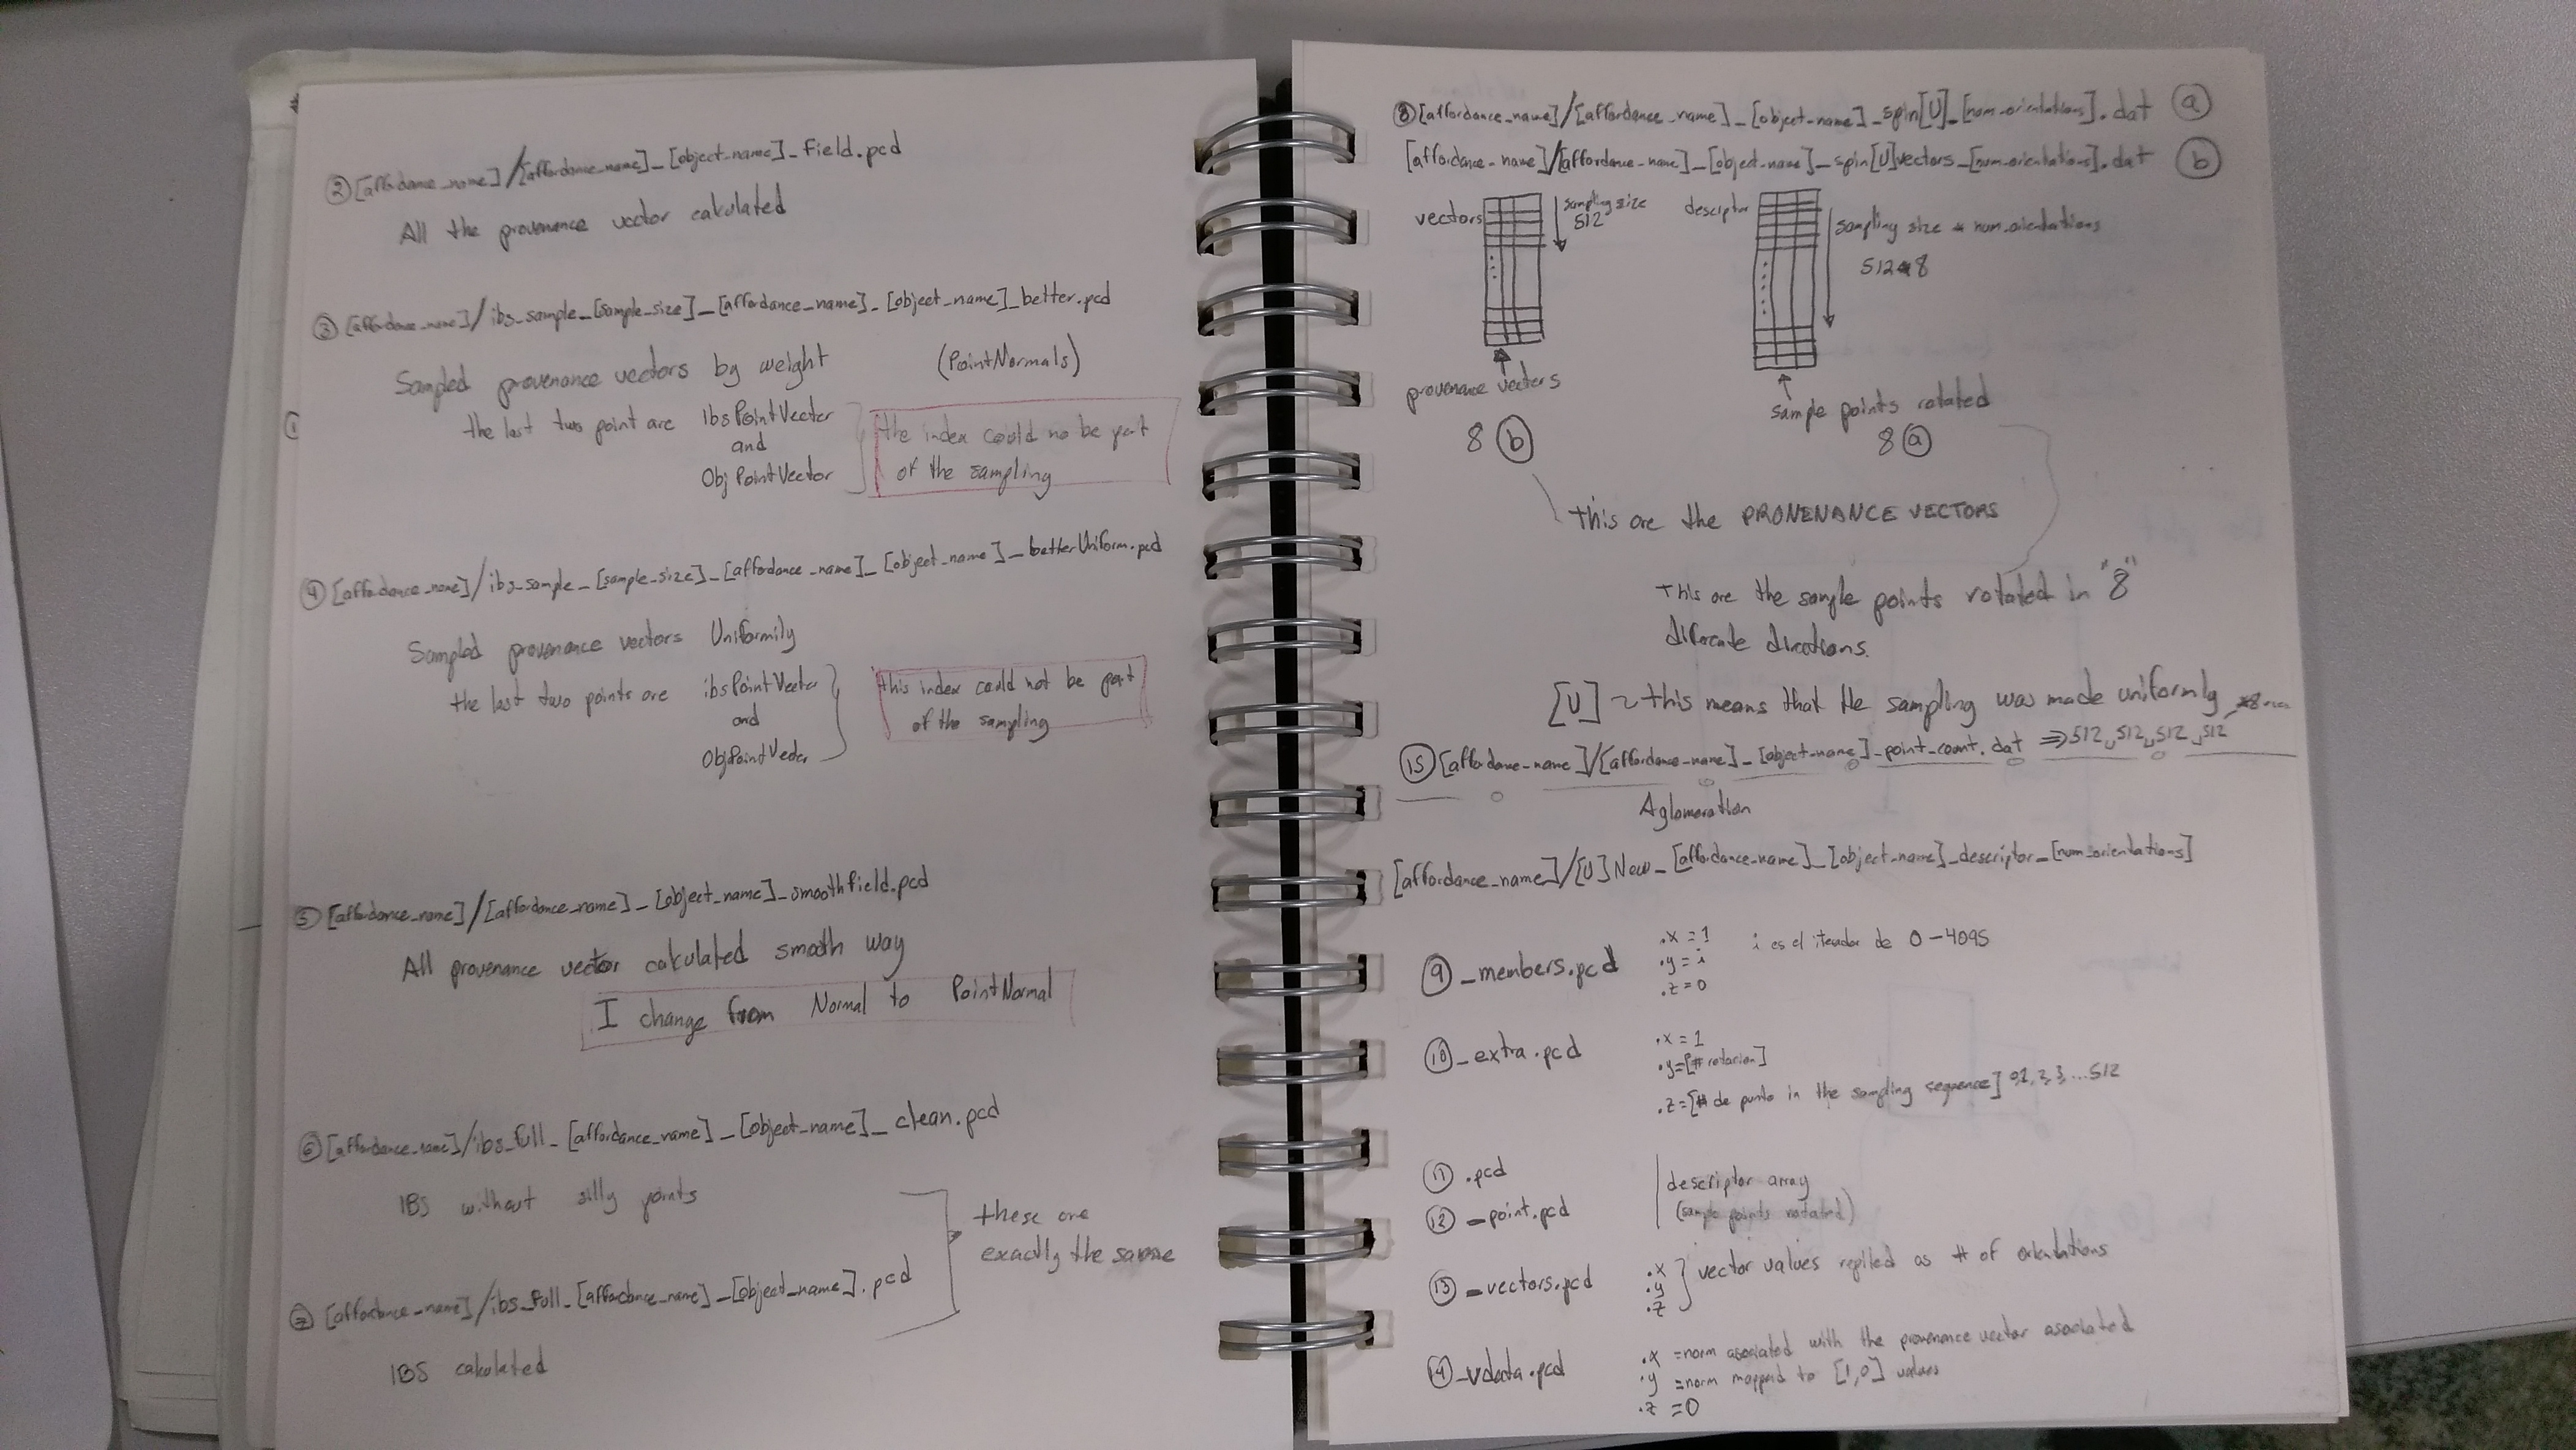 ② [affordance_name]/[affordance_name]_[object_name]_field.pcd
All the provenance vector calculated
③ [affordance_name]/ibs_sample_[sample_size]_[affordance_name]_[object_name]_better.pcd
Sampled provenance vectors by weight (PointNormals)
the last two point are ibsPointVector
and
ObjPointVector
the index could no be part
of the sampling
①
④ [affordance_name]/ibs_sample_[sample_size]_[affordance_name]_[object_name]_betterUniform.pcd
Sampled provenance vectors Uniformily
the last two points are ibsPointVector
and
ObjPointVector
this index could not be part
of the sampling
⑤ [affordance_name]/[affordance_name]_[object_name]_smoothfield.pcd
All provenance vector calculated smooth way
I change from Normal to PointNormal
⑥ [affordance_name]/ibs_full_[affordance_name]_[object_name]_clean.pcd
IBS without silly points
these are
exactly the same
⑦ [affordance_name]/ibs_full_[affordance_name]_[object_name].pcd
IBS calculated
⑧ [affordance_name]/[affordance_name]_[object_name]_spin[U]_[num_orientations].dat ⓐ
[affordance_name]/[affordance_name]_[object_name]_spin[U]vectors_[num_orientations].dat ⓑ
vectors
sampling size
512
descriptor
sampling size * num.orientations
512*8
provenance vectors
8 ⓑ
sample points rotated
8 ⓐ
this are the PRONENANCE VECTORS
This are the sample points rotated in "8"
diferente directions.
[U] ~ this means that the sampling was made uniformly
⑮ [affordance_name]/[affordance_name]_[object_name]_point_count.dat ⇒ 512␣512␣512␣512
Aglomeration
[affordance_name]/[U]New_[affordance_name]_[object_name]_descriptor_[num_orientations]
⑨ _members.pcd
.x = 1
.y = i
.z = 0
i es el iterador de 0 - 4095
⑩ _extra.pcd
.x = 1
.y=[# rotacion]
.z=[# de punto in the sampling sequence] 0,1,2,3,...512
⑪ .pcd
⑫ _point.pcd
descriptor array
(sample points rotated)
⑬ _vectors.pcd
.x
.y
.z
vector values replied as # of orientations
⑭ _vdata.pcd
.x = norm asociated with the provenance vector asociated
.y = norm mapped to [1,0] values
.z = 0